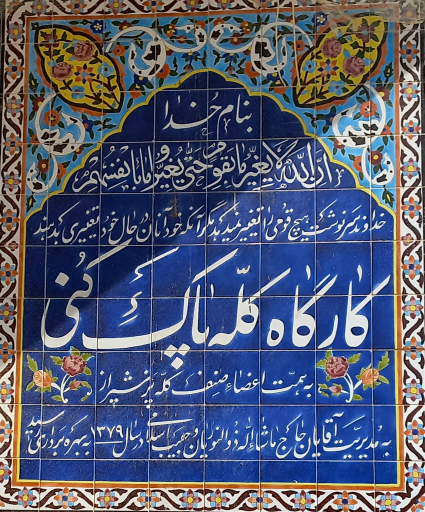 بنام خدا
ان الله لا یغیر ما بقوم حتی یغیروا ما بانفسهم
خداوند سرنوشت هیچ قومی را تغییر نمیدهد مگر آنکه خودشان در حال خود تغییری دهند
کارگاه کله پاک کنی
به همت اعضاء صنف کله پز شیراز
به مدیریت آقایان حاج ماشاءاله ذوالنوریان و حبیب اسلامی در سال ۱۳۷۹ به بهره برداری رسید